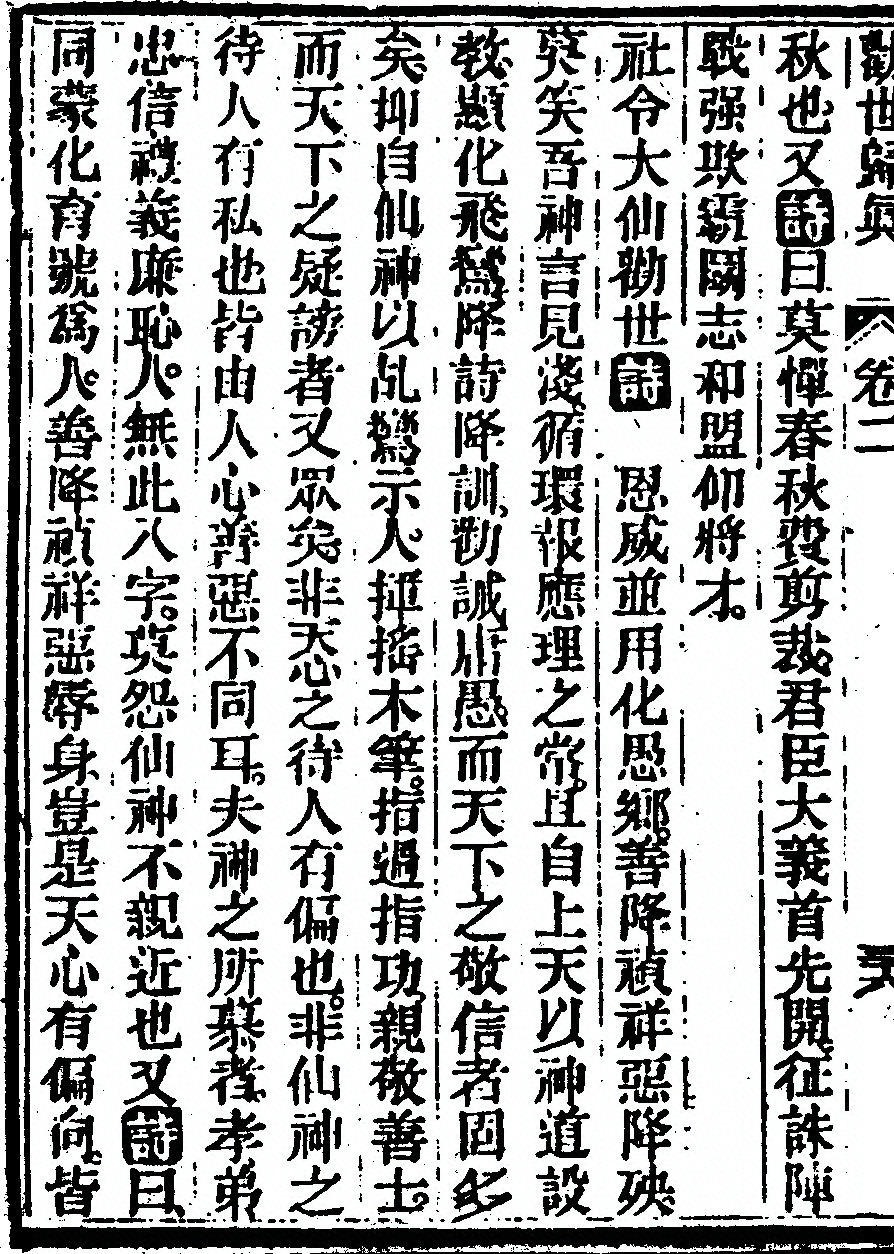 勸世歸真 卷二 三六
秋也又詩曰莫憚春秋費剪裁君臣大義首先開征誅陣
戰强欺霸圖志和盟仰將才
社令大仙勸世詩 恩威並用化愚鄉善降禎祥惡降殃
莫笑吾神言見淺循環報應理之常且自上天以神道設
教顯化飛鸞降詩降訓勸誡庸愚而天下之敬信者固多
矣抑自仙神以乩鸞示人揮搖木筆指過指功親敬善士
而天下之疑謗者又眾矣非天心之待人有偏也非仙神之
待人有私也皆由人心善惡不同耳夫神之所慕者孝弟
忠信禮義廉恥人無此八字莫怨仙神不親近也又詩曰
同蒙化育號為人善降禎祥惡辱身豈是天心有偏向皆